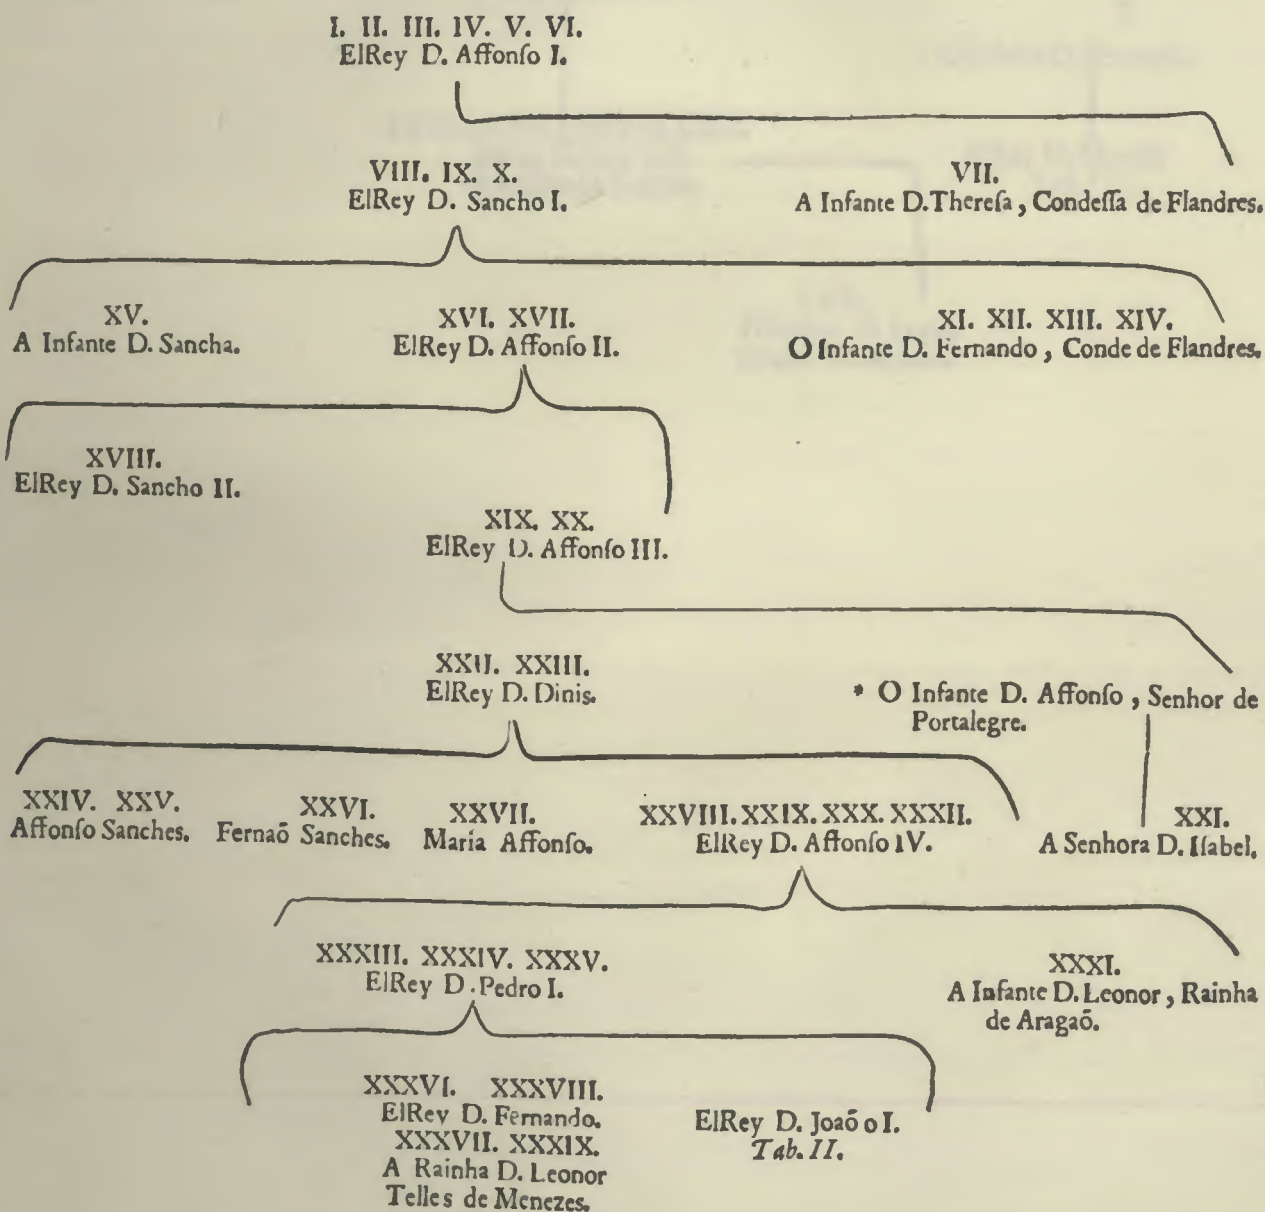 I. II. III. IV. V. VI.
ElRey D. Affonſo I.
VIII. IX. X.
ElRey D. Sancho I.
VII.
A Infante D. Thereſa, Condeſſa de Flandres.
XV.
A Infante D. Sancha.
XVI. XVII.
ElRey D. Affonſo II.
XI. XII. XIII. XIV.
O Infante D. Fernando, Conde de Flandres.
XVIII.
ElRey D. Sancho II.
XIX. XX.
ElRey D. Affonſo III.
XXII. XXIII.
ElRey D. Dinis.
* O Infante D. Affonſo, Senhor de
Portalegre.
XXIV. XXV.
Affonſo Sanches.
XXVI.
Fernaõ Sanches.
XXVII.
Maria Affonſo.
XXVIII. XXIX. XXX. XXXII.
ElRey D. Affonſo IV.
XXI.
A Senhora D. Iſabel.
XXXIII. XXXIV. XXXV.
ElRey D. Pedro I.
XXXI.
A Infante D. Leonor, Rainha
de Aragaõ.
XXXVI. XXXVIII.
ElRey D. Fernando.
XXXVII. XXXIX.
A Rainha D. Leonor
Telles de Menezes.
ElRey D. Joaõ o I.
Tab. II.